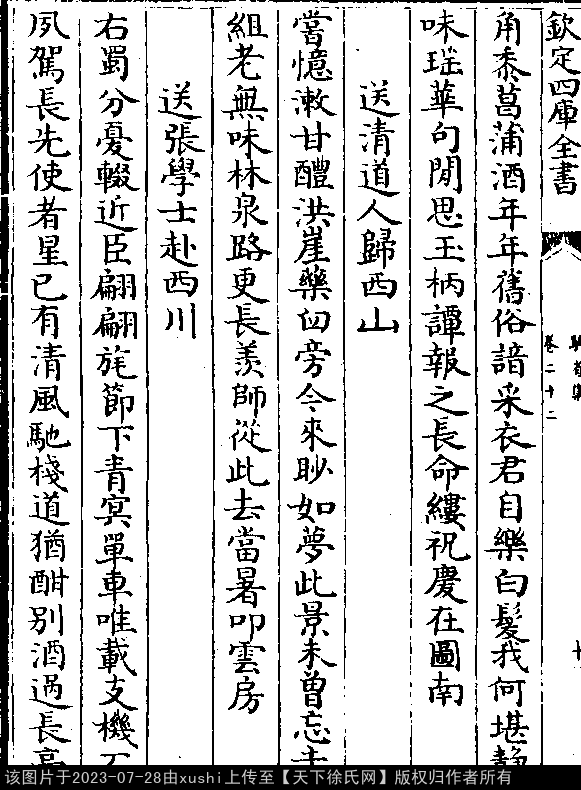 欽定四庫全書
卷二十二
角黍菖蒲酒年年舊俗諳采衣君自樂白髮我何堪静
味瑶華句閒思玉柄譚報之長命縷祝慶在圖南
送清道人歸西山
嘗憶漱甘醴洪崖藥臼旁今來眇如夢此景未曾忘
組老無味林泉路更長羨師從此去當暑叩雲房
送張學士赴西川
右蜀分憂輟近臣翩翩旄節下青冥單車唯載支機
夙駕長先使者星已有清風馳棧道猶酣别酒過長亭
该图片于2023-07-28由xushi上传至【天下徐氏网】版权归作者所有